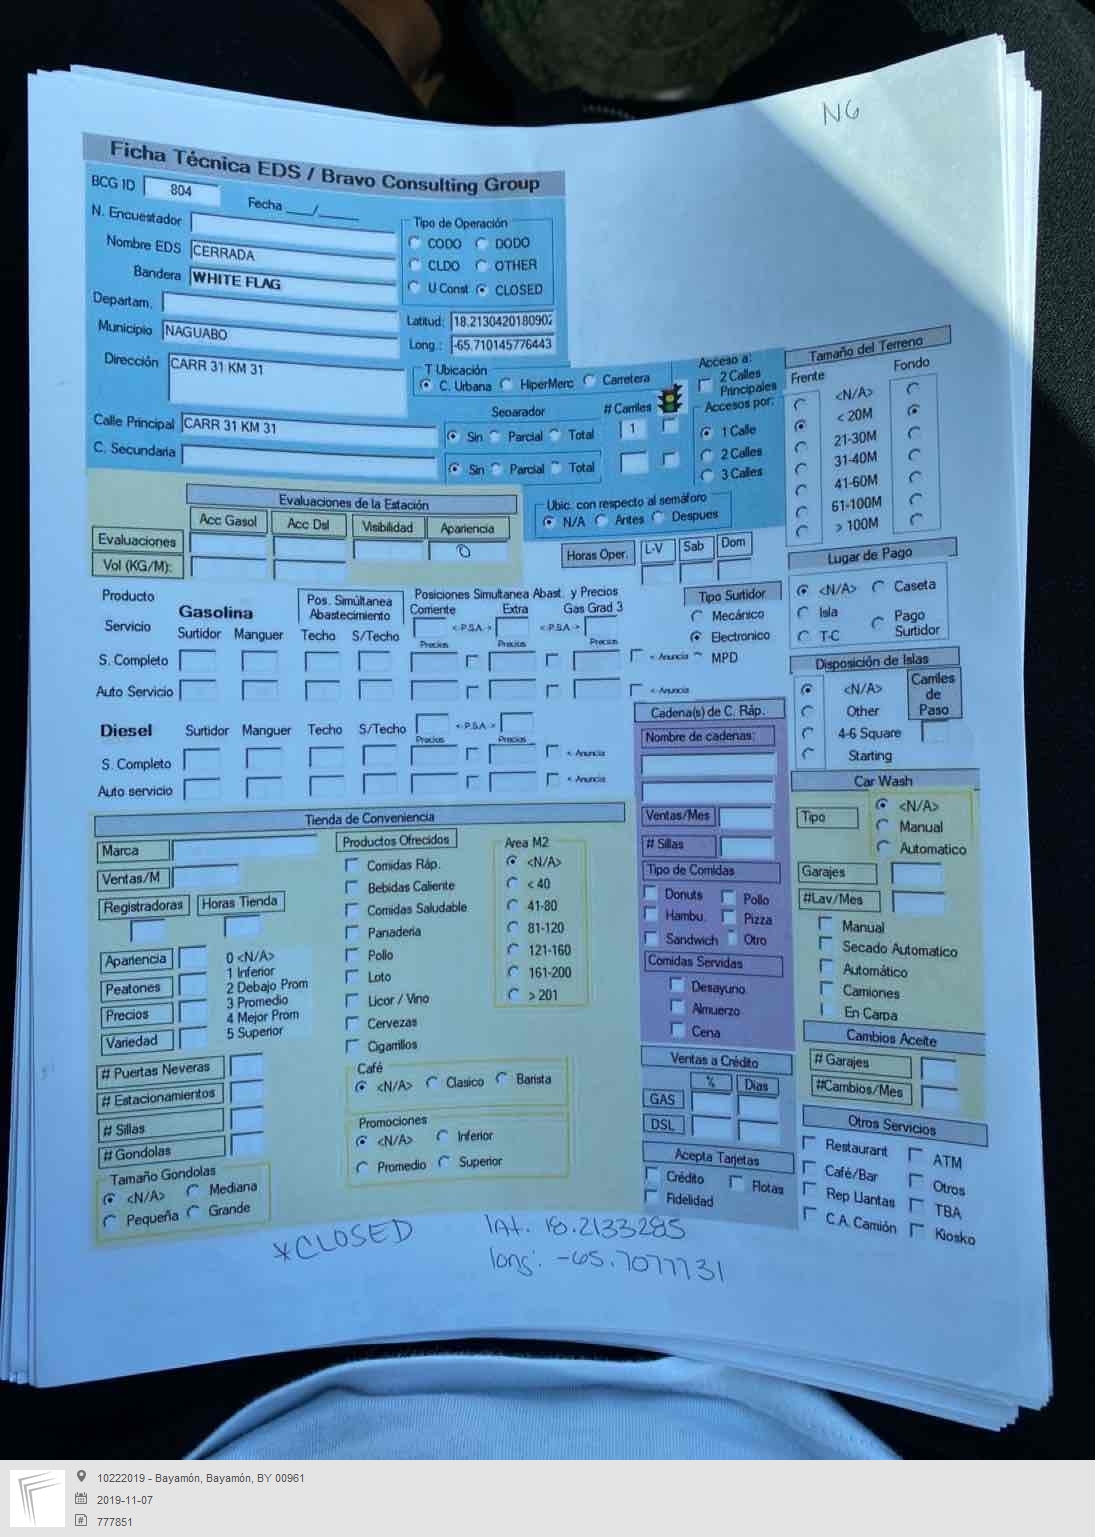 NG
Ficha Técnica EDS / Bravo Consulting Group
BCG ID 804 Fecha ___/_____
N. Encuestador
Nombre EDS CERRADA
Bandera WHITE FLAG
Departam.
Municipio NAGUABO
Dirección CARR 31 KM 31
Calle Principal CARR 31 KM 31
C. Secundaria
Tipo de Operación
CODO DODO
CLDO OTHER
U Const CLOSED
Latitud: 18.2130420180902
Long.: -65.710145776443
T Ubicación
C. Urbana HiperMerc Carretera
Separador # Carriles
Sin Parcial Total 1
Sin Parcial Total
Acceso a:
2 Calles
Principales
Accesos por:
1 Calle
2 Calles
3 Calles
Ubic. con respecto al semáforo
N/A Antes Despues
Tamaño del Terreno
Frente Fondo
<N/A>
< 20M
21-30M
31-40M
41-60M
61-100M
> 100M
Evaluaciones de la Estación
Acc Gasol Acc Dsl Visibilidad Apariencia
Evaluaciones 0
Vol (KG/M):
Horas Oper. L-V Sab Dom
Lugar de Pago
<N/A> Caseta
Isla Pago
T-C Surtidor
Producto Gasolina
Servicio Surtidor Manguer
Pos. Simúltanea
Abastecimiento
Techo S/Techo
Posiciones Simultanea Abast. y Precios
Corriente Extra Gas Grad 3
<-P.S.A.-> <-P.S.A.->
Precios Precios Precios
S. Completo < Anuncia
Auto Servicio < Anuncia
Tipo Surtidor
Mecánico
Electronico
MPD
Disposición de Islas
<N/A>
Other
4-6 Square
Starting
Carriles
de
Paso
Diesel Surtidor Manguer Techo S/Techo <-P.S.A.->
Precios Precios
S. Completo < Anuncia
Auto servicio < Anuncia
Cadena(s) de C. Ráp.
Nombre de cadenas:
Ventas/Mes
# Sillas
Tipo de Comidas
Donuts Pollo
Hambu. Pizza
Sandwich Otro
Comidas Servidas
Desayuno
Almuerzo
Cena
Car Wash
Tipo
<N/A>
Manual
Automatico
Garajes
#Lav/Mes
Manual
Secado Automatico
Automático
Camiones
En Carpa
Tienda de Conveniencia
Marca
Ventas/M
Registradoras Horas Tienda
Apariencia
Peatones
Precios
Variedad
0 <N/A>
1 Inferior
2 Debajo Prom
3 Promedio
4 Mejor Prom
5 Superior
# Puertas Neveras
# Estacionamientos
# Sillas
# Gondolas
Tamaño Gondolas
<N/A> Mediana
Pequeña Grande
Productos Ofrecidos
Comidas Ráp.
Bebidas Caliente
Comidas Saludable
Panaderia
Pollo
Loto
Licor / Vino
Cervezas
Cigarrillos
Area M2
<N/A>
< 40
41-80
81-120
121-160
161-200
> 201
Café
<N/A> Clasico Barista
Promociones
<N/A> Inferior
Promedio Superior
Ventas a Crédito
% Dias
GAS
DSL
Acepta Tarjetas
Crédito Flotas
Fidelidad
Cambios Aceite
# Garajes
#Cambios/Mes
Otros Servicios
Restaurant ATM
Café/Bar Otros
Rep Llantas TBA
C.A. Camión Kiosko
*CLOSED
lat. 18.2133285
long: -65.7077731
10222019 - Bayamón, Bayamón, BY 00961
2019-11-07
777851